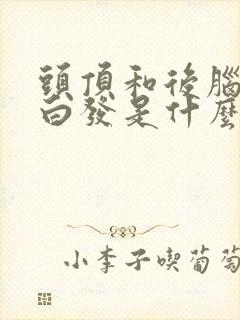 頭頂和後腦
白發是什麼
小李子喫葡萄